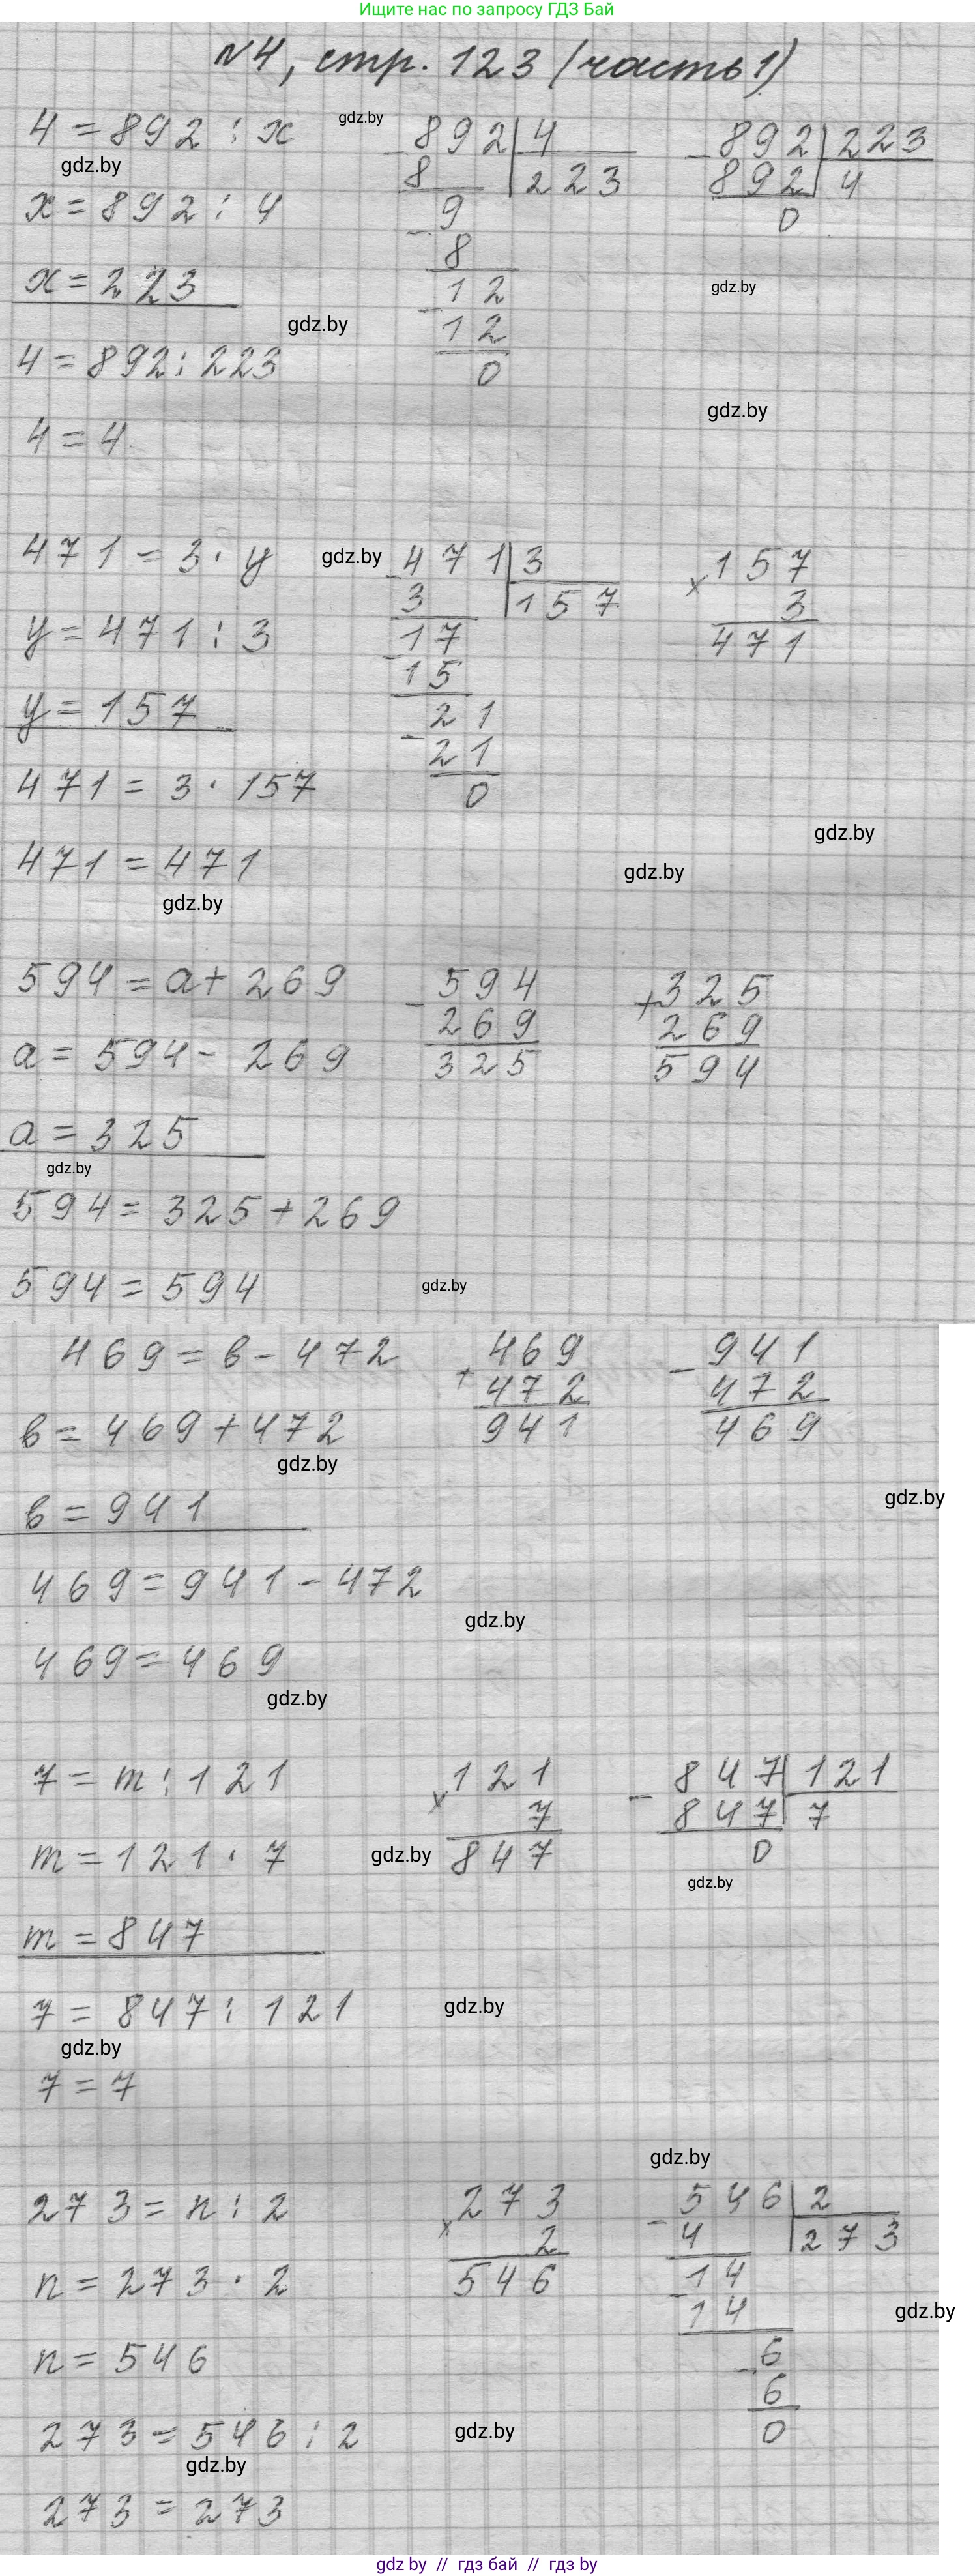 Ищите нас по запросу ГДЗ Бай
№4, стр. 123 (часть 1)
4 = 892 : x
gdz.by
892 4
892 223
gdz.by
8 223
892 4
x = 892 : 4
9
0
8
x = 223
12
gdz.by
gdz.by
12
4 = 892 : 223
0
gdz.by
4 = 4
471 = 3 · y
gdz.by
471 3
× 157
3 157
3
y = 471 : 3
17
471
15
y = 157
21
21
471 = 3 · 157
0
gdz.by
471 = 471
gdz.by
gdz.by
594 = a + 269
- 594
+ 325
269
269
a = 594 - 269
325
594
a = 325
gdz.by
594 = 325 + 269
594 = 594
gdz.by
469 = в - 472
+ 469
- 941
472
472
в = 469 + 472
941
469
gdz.by
в = 941
gdz.by
469 = 941 - 472
gdz.by
469 = 469
gdz.by
7 = m : 121
× 121
- 847 121
7
847 7
m = 121 · 7
gdz.by
847
0
gdz.by
m = 847
7 = 847 : 121
gdz.by
gdz.by
7 = 7
gdz.by
273 = n : 2
× 273
- 546 2
2
4 273
n = 273 · 2
546
14
14
gdz.by
n = 546
6
6
273 = 546 : 2
gdz.by
0
gdz.by
273 = 273
gdz by // гдз бай // гдз by